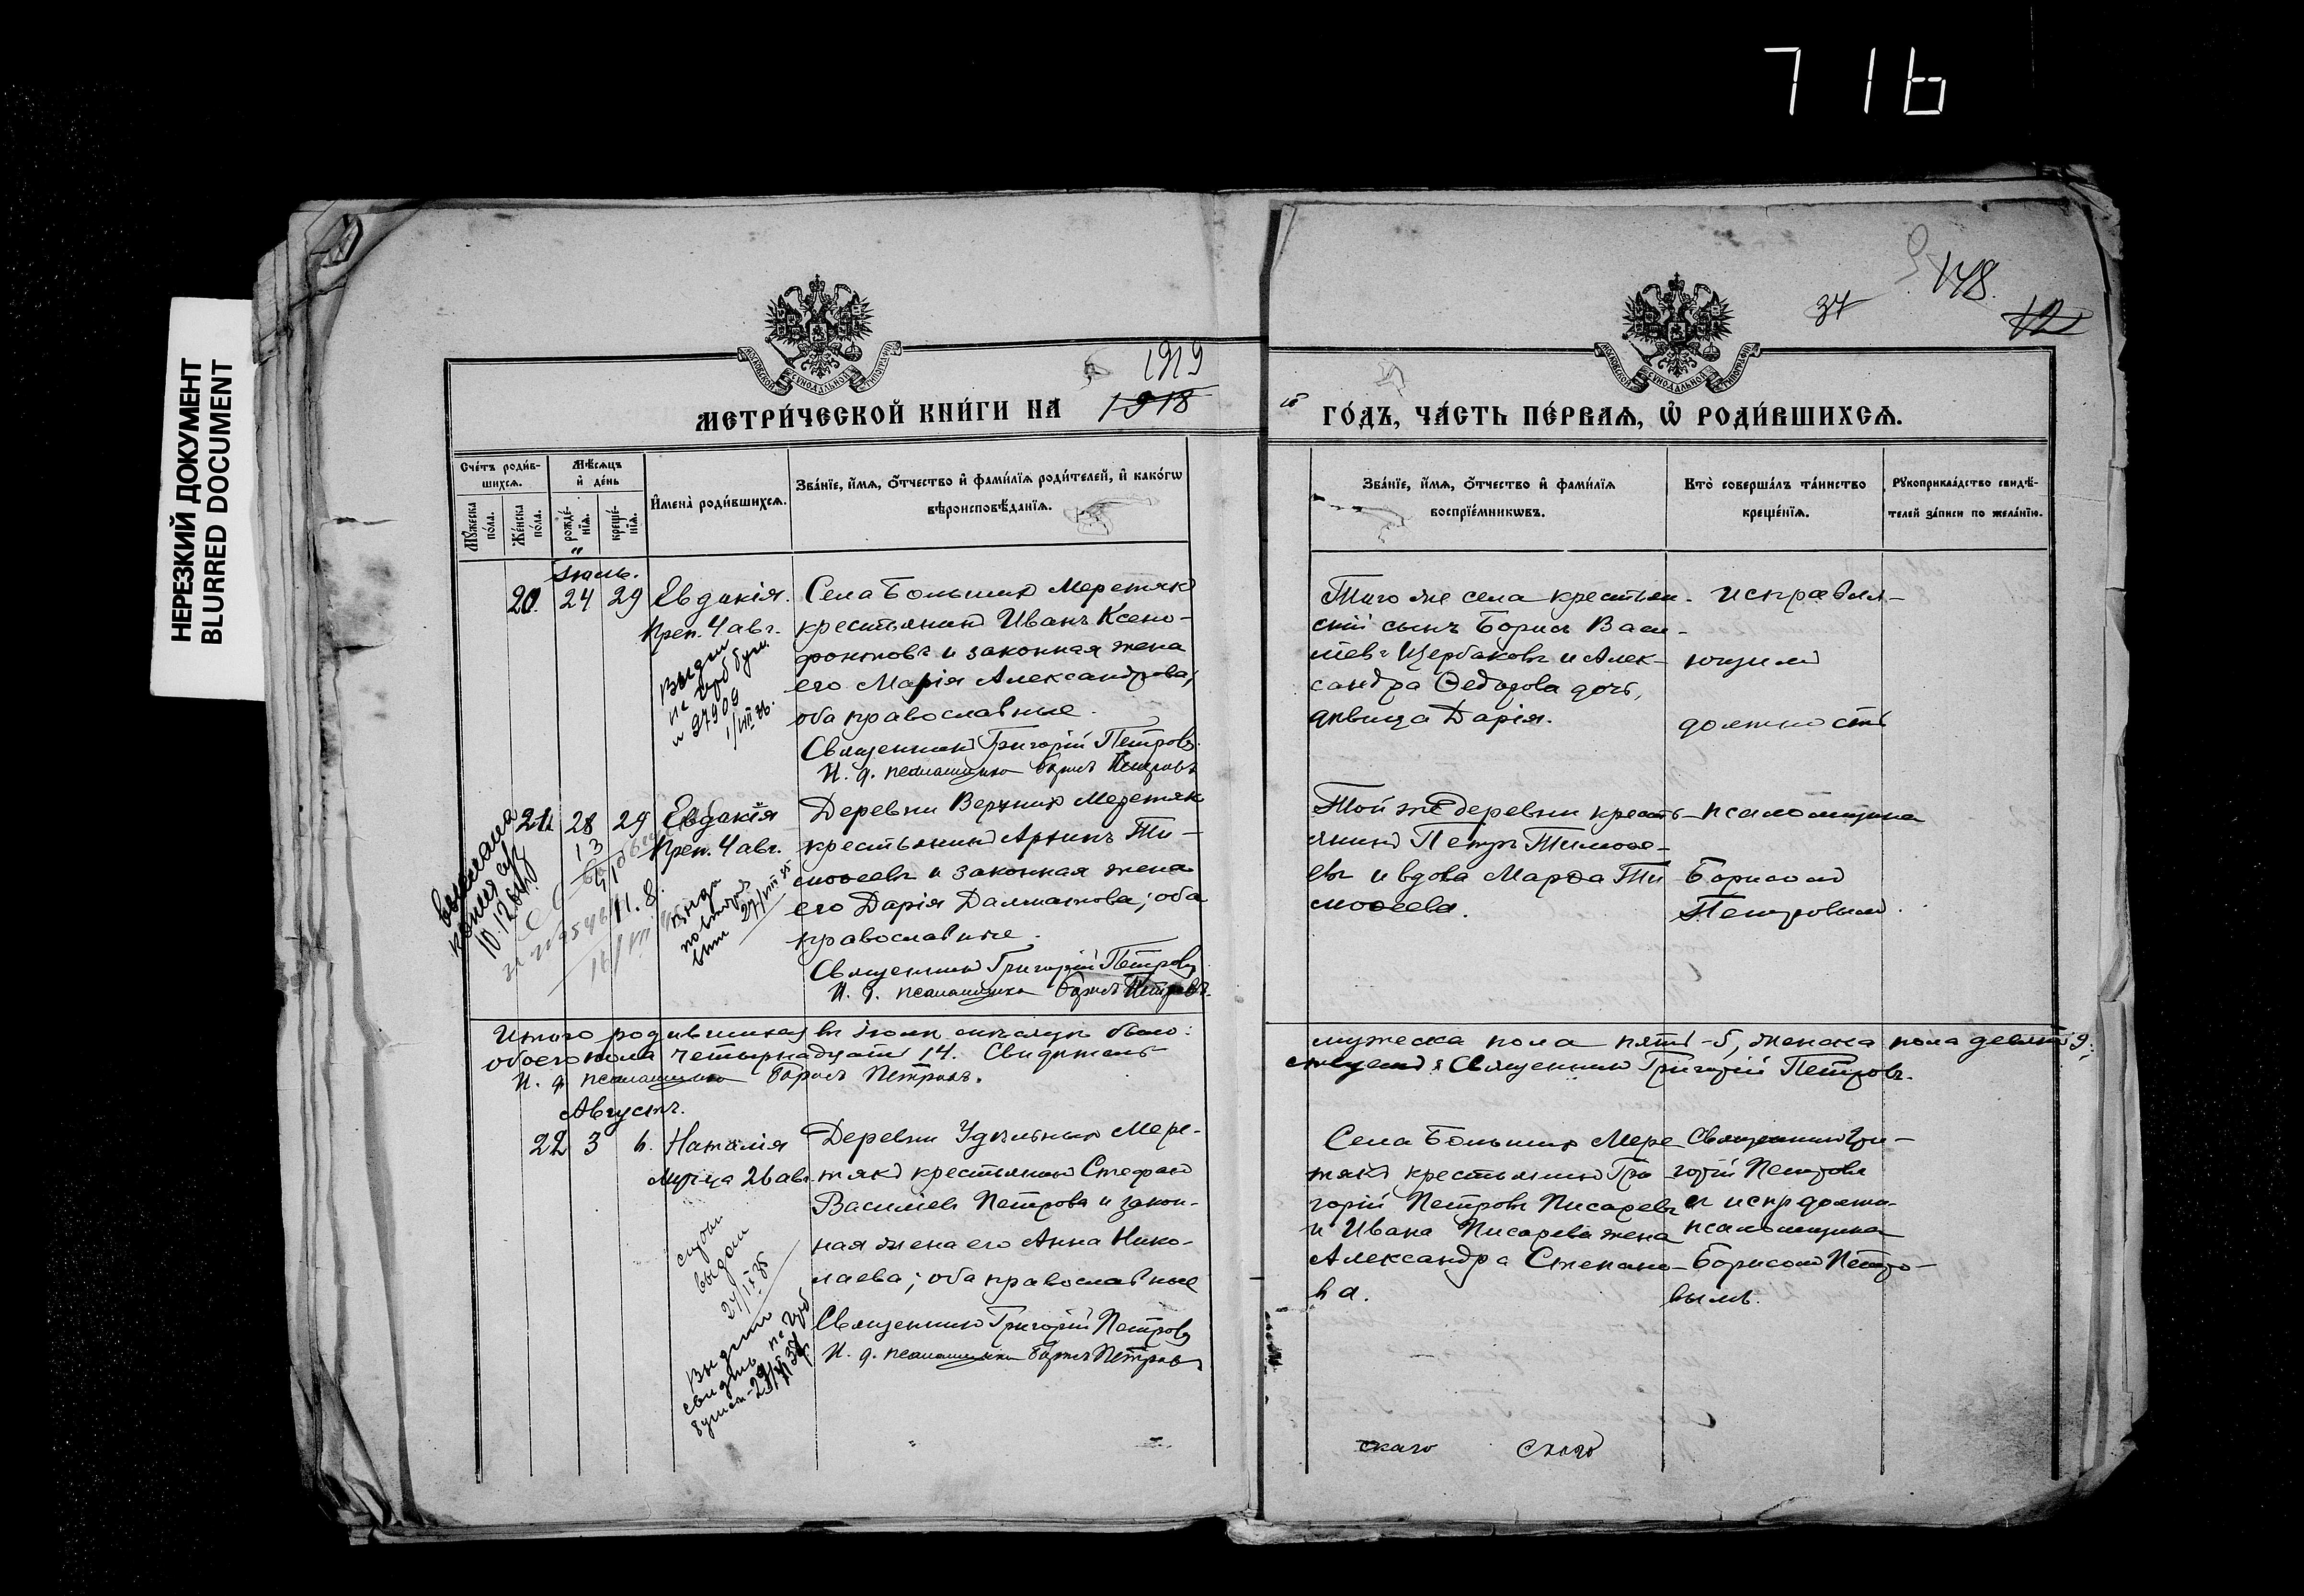 716
НЕРЕЗКИЙ ДОКУМЕНТ
BLURRED DOCUMENT
148.
37
12
МОСКОВСКОЙ СѴНОДАЛЬНОЙ ТИПОГРАФІИ
МОСКОВСКОЙ СѴНОДАЛЬНОЙ ТИПОГРАФІИ
1919
МЕТРИ́ЧЕСКОЙ КНИ́ГИ НА 1918
ГО́ДЪ, ЧА́СТЬ ПЕ́РВАѦ, Ѡ҆ РОДИ́ВШИХСѦ.
Сче́тъ роди́в-
шихсѧ.
Мѣ́сѧцъ
и҆ де́нь
Мꙋ́жеска по́ла.
Же́нска по́ла.
рожде́-
нїѧ.
креще́-
нїѧ.
И҆мена̀ роди́вшихсѧ.
Зва́нїе, и҆́мѧ, ѻ҆́тчество и҆ фами́лїѧ роди́телей, и҆ како́гѡ
вѣроисповѣ́данїѧ.
Зва́нїе, и҆́мѧ, ѻ҆́тчество и҆ фами́лїѧ
воспрїе́мникѡвъ.
Кто̀ соверша́лъ та́инство
креще́нїѧ.
Рꙋкоприкла́дство свидѣ́-
телей за́писи по жела́нїю.
Іюль.
20. 24 29 Евдокія.
Преп. 4 авг.
Выдан
1/VIII 36.
Села Большихъ Меретякъ
крестьянинъ Иванъ Ксено-
фонтовъ и законная жена
его Марія Александрова;
оба православные.
Священникъ Григорій Петровъ
И. д. псаломщика Борисъ Петровъ
Того же села крестьян-
скій сынъ Борисъ Васи-
льевъ Щербаковъ и Алек-
сандра Ѳедорова дочь,
дѣвица Дарія.
исправля-
ющимъ
должность
21 28 29 Евдокія
13
Преп. 4 авг.
выслана
копия
11.8.
27/VIII 35
Деревни Верхнихъ Меретякъ
крестьянинъ Архипъ Ти-
моѳеевъ и законная жена
его Дарія Далматова; оба
православные.
Священникъ Григорій Петровъ
И. д. псаломщика Борисъ Петровъ.
Той же деревни кресть-
янинъ Петръ Тимоѳе-
евъ и вдова Марѳа Ти
моѳеева.
псаломщика
Борисомъ
Петровымъ.
Итого родившихся въ іюлѣ мѣсяцѣ было:
мужеска пола пять - 5, женска пола девять 9;
обоего пола четырнадцать 14. Свидѣтель-
ствуемъ: Священникъ Григорій Петровъ.
И. д. псаломщика Борисъ Петровъ.
Августъ.
22 3 6. Наталія
муч-ца 26 авг.
выдан
27/IX 35
Выдано
свидет. на
Деревни Удѣльныхъ Мере-
тякъ крестьянинъ Стефанъ
Василіевъ Петровъ и закон-
ная жена его Анна Нико-
лаева; оба православные
Священникъ Григорій Петровъ
И. д. псаломщика Борисъ Петровъ
Села Большихъ Мере
тякъ крестьянинъ Гри
горій Петровъ Писаревъ
и Ивана Писарева жена
Александра Степано-
ва.
Священникъ Гри-
горій Петровъ
и испр должн.
псаломщика
Борисомъ Петро-
вымъ.
скаго скаго